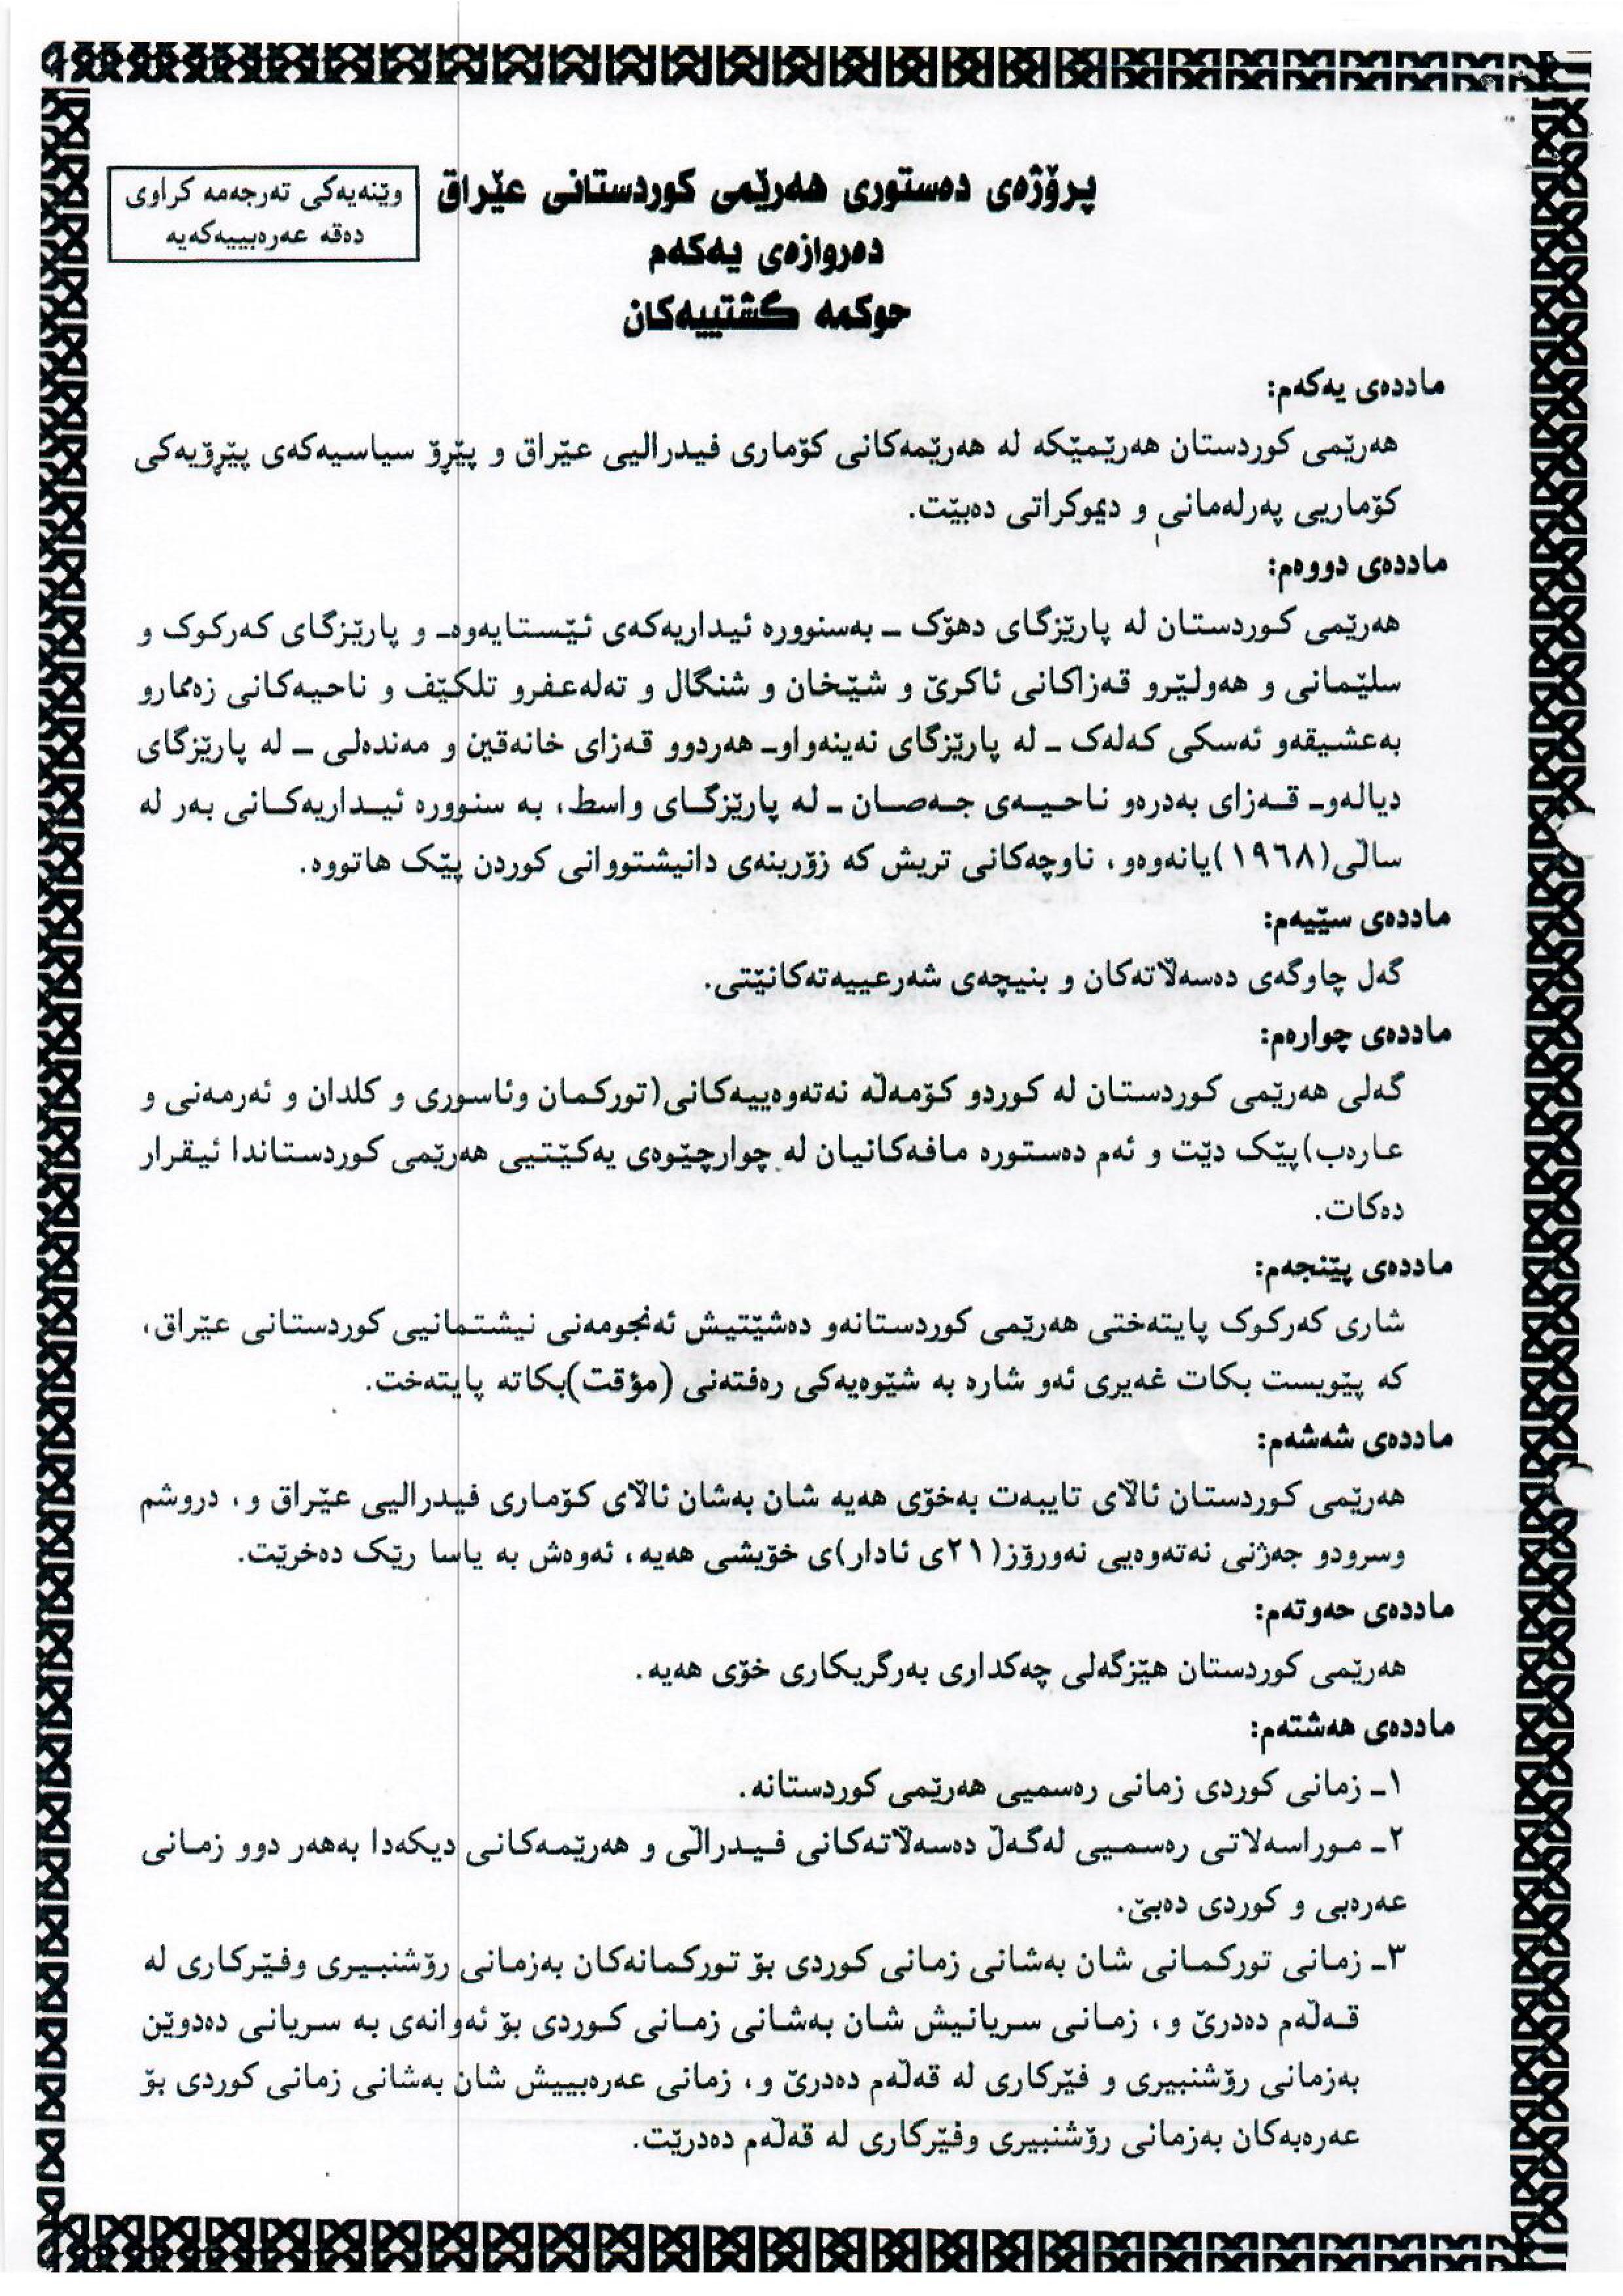 پرۆژەی دەستوری هەرێمی کوردستانی عێراق
وێنەیەکی تەرجەمە کراوی
دەقە عەرەبییەکەیە
دەروازەی یەکەم
حوکمە گشتییەکان
ماددەی یەکەم:
هەرێمی کوردستان هەرێمێکە لە هەرێمەکانی کۆماری فیدرالیی عێراق و پێڕۆ سیاسیەکەی پێڕۆیەکی
کۆماریی پەرلەمانی و دیموکراتی دەبێت.
ماددەی دووەم:
هەرێمی کوردستان لە پارێزگای دهۆک ـ بەسنوورە ئیداریەکەی ئێستایەوەـ و پارێزگای کەرکوک و
سلێمانی و هەولێرو قەزاکانی ئاکرێ و شێخان و شنگال و تەلەعفرو تلکێف و ناحیەکانی زەممارو
بەعشیقەو ئەسکی کەلەک ـ لە پارێزگای نەینەواوـ هەردوو قەزای خانەقین و مەندەلی ـ لە پارێزگای
دیالەوـ قەزای بەدرەو ناحیەی جەصان ـ لە پارێزگای واسط، بە سنوورە ئیداریەکانی بەر لە
ساڵی(١٩٦٨)یانەوەو، ناوچەکانی تریش کە زۆرینەی دانیشتووانی کوردن پێک هاتووە.
ماددەی سێیەم:
گەل چاوگەی دەسەڵاتەکان و بنیچەی شەرعییەتەکانێتی.
ماددەی چوارەم:
گەلی هەرێمی کوردستان لە کوردو کۆمەڵە نەتەوەییەکانی(تورکمان وئاسوری و کلدان و ئەرمەنی و
عارەب)پێک دێت و ئەم دەستورە مافەکانیان لە چوارچێوەی یەکێتیی هەرێمی کوردستاندا ئیقرار
دەکات.
ماددەی پێنجەم:
شاری کەرکوک پایتەختی هەرێمی کوردستانەو دەشێتیش ئەنجومەنی نیشتمانیی کوردستانی عێراق،
کە پێویست بکات غەیری ئەو شارە بە شێوەیەکی رەفتەنی (مؤقت)بکاتە پایتەخت.
ماددەی شەشەم:
هەرێمی کوردستان ئاڵای تایبەت بەخۆی هەیە شان بەشان ئاڵای کۆماری فیدرالیی عێراق و، دروشم
وسرودو جەژنی نەتەوەیی نەورۆز(٢١ی ئادار)ی خۆیشی هەیە، ئەوەش بە یاسا رێک دەخرێت.
ماددەی حەوتەم:
هەرێمی کوردستان هێزگەلی چەکداری بەرگریکاری خۆی هەیە.
ماددەی هەشتەم:
١ـ زمانی کوردی زمانی رەسمیی هەرێمی کوردستانە.
٢ـ موراسەلاتی رەسمیی لەگەڵ دەسەڵاتەکانی فیدراڵی و هەرێمەکانی دیکەدا بەهەر دوو زمانی
عەرەبی و کوردی دەبێ.
٣ـ زمانی تورکمانی شان بەشانی زمانی کوردی بۆ تورکمانەکان بەزمانی رۆشنبیری وفێرکاری لە
قەڵەم دەدرێ و، زمانی سریانیش شان بەشانی زمانی کوردی بۆ ئەوانەی بە سریانی دەدوێن
بەزمانی رۆشنبیری و فێرکاری لە قەڵەم دەدرێ و، زمانی عەرەبییش شان بەشانی زمانی کوردی بۆ
عەرەبەکان بەزمانی رۆشنبیری وفێرکاری لە قەڵەم دەدرێت.